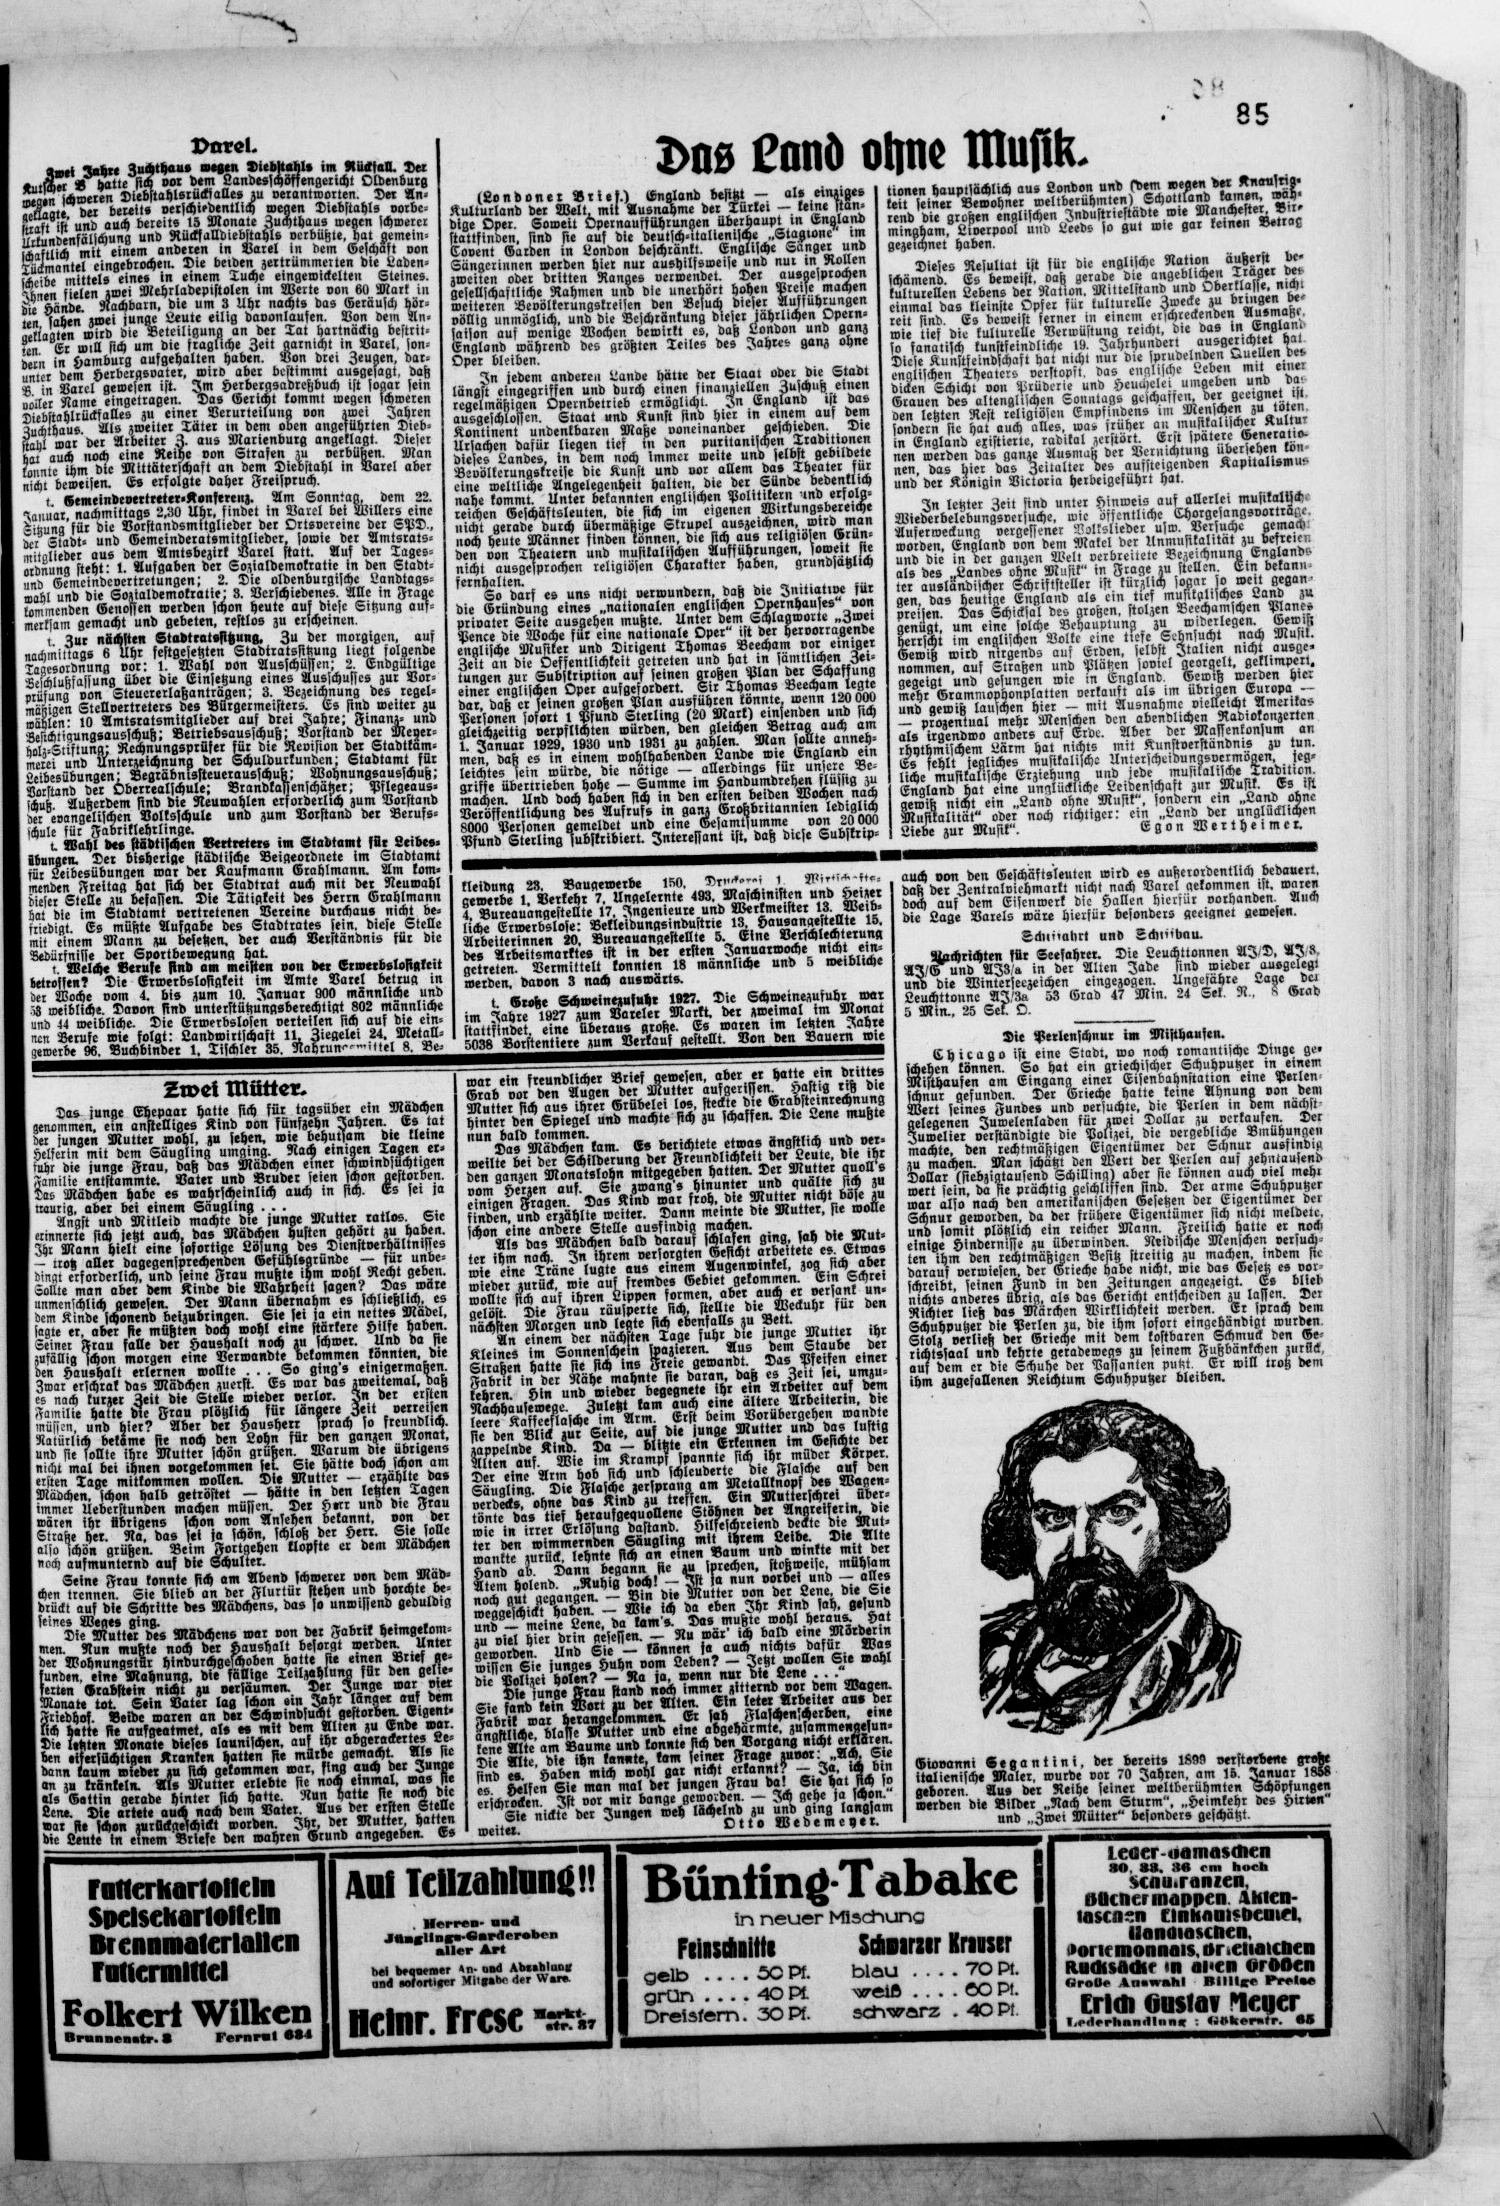 85
Varel.
Zwei Jahre Zuchthaus wegen Diebstahls im Rückfall. Der
Kutscher B hatte sich vor dem Landesschöffengericht Oldenburg
wegen schweren Diebstahlsrückfalles zu verantworten. Der An-
geklagte, der bereits verschiedentlich wegen Diebstahls vorbe-
straft ist und auch bereits 15 Monate Zuchthaus wegen schwerer
Urkundenfälschung und Rückfalldiebstahls verbüßte, hat gemein-
schaftlich mit einem anderen in Varel in dem Geschäft von
Tückmantel eingebrochen. Die beiden zertrümmerten die Laden-
scheibe mittels eines in einem Tuche eingewickelten Steines.
Ihnen fielen zwei Mehrladepistolen im Werte von 60 Mark in
die Hände. Nachbarn, die um 3 Uhr nachts das Geräusch hör-
ten, sahen zwei junge Leute eilig davonlaufen. Von dem An-
geklagten wird die Beteiligung an der Tat hartnäckig bestrit-
ten. Er will sich um die fragliche Zeit garnicht in Varel, son-
dern in Hamburg aufgehalten haben. Von drei Zeugen, dar-
unter dem Herbergsvater, wird aber bestimmt ausgesagt, daß
B. in Varel gewesen ist. Im Herbergsadreßbuch ist sogar sein
voller Name eingetragen. Das Gericht kommt wegen schweren
Diebstahlrückfalles zu einer Verurteilung von zwei Jahren
Zuchthaus. Als zweiter Täter in dem oben angeführten Dieb-
stahl war der Arbeiter Z. aus Marienburg angeklagt. Dieser
hat auch noch eine Reihe von Strafen zu verbüßen. Man
konnte ihm die Mittäterschaft an dem Diebstahl in Varel aber
nicht beweisen. Es erfolgte daher Freispruch.
t. Gemeindevertreter-Konferenz. Am Sonntag, dem 22.
Januar, nachmittags 2,30 Uhr, findet in Varel bei Willers eine
Sitzung für die Vorstandsmitglieder der Ortsvereine der SPD.,
der Stadt- und Gemeinderatsmitglieder, sowie der Amtsrats-
mitglieder aus dem Amtsbezirk Varel statt. Auf der Tages-
ordnung steht: 1. Aufgaben der Sozialdemokratie in den Stadt-
und Gemeindevertretungen; 2. Die oldenburgische Landtags-
wahl und die Sozialdemokratie; 3. Verschiedenes. Alle in Frage
kommenden Genossen werden schon heute auf diese Sitzung auf-
merksam gemacht und gebeten, restlos zu erscheinen.
t. Zur nächsten Stadtratssitzung. Zu der morgigen, auf
nachmittags 6 Uhr festgesetzten Stadtratssitzung liegt folgende
Tagesordnung vor: 1. Wahl von Ausschüssen; 2. Endgültige
Beschlußfassung über die Einsetzung eines Ausschusses zur Vor-
prüfung von Steuererlaßanträgen; 3. Bezeichnung des regel-
mäßigen Stellvertreters des Bürgermeisters. Es sind weiter zu
wählen: 10 Amtsratsmitglieder auf drei Jahre; Finanz- und
Besichtigungsausschuß; Betriebsausschuß; Vorstand der Meyer-
holz-Stiftung; Rechnungsprüfer für die Revision der Stadtkäm-
merei und Unterzeichnung der Schuldurkunden; Stadtamt für
Leibesübungen; Begräbnissteuerausschuß; Wohnungsausschuß;
Vorstand der Oberrealschule; Brandkassenschätzer; Pflegeaus-
schuß. Außerdem sind die Neuwahlen erforderlich zum Vorstand
der evangelischen Volksschule und zum Vorstand der Berufs-
schule für Fabriklehrlinge.
t. Wahl des städtischen Vertreters im Stadtamt für Leibes-
übungen. Der bisherige städtische Beigeordnete im Stadtamt
für Leibesübungen war der Kaufmann Grahlmann. Am kom-
menden Freitag hat sich der Stadtrat auch mit der Neuwahl
dieser Stelle zu befassen. Die Tätigkeit des Herrn Grahlmann
hat die im Stadtamt vertretenen Vereine durchaus nicht be-
friedigt. Es müßte Aufgabe des Stadtrates sein, diese Stelle
mit einem Mann zu besetzen, der auch Verständnis für die
Bedürfnisse der Sportbewegung hat.
t. Welche Berufe sind am meisten von der Erwerbslosigkeit
betroffen? Die Erwerbslosigkeit im Amte Varel betrug in
der Woche vom 4. bis zum 10. Januar 900 männliche und
53 weibliche. Davon sind unterstützungsberechtigt 802 männliche
und 44 weibliche. Die Erwerbslosen verteilen sich auf die ein-
nen Berufe wie folgt: Landwirtschaft 11, Ziegelei 24, Metall-
gewerbe 96, Buchbinder 1, Tischler 35, Nahrungsmittel 8, Be-
Das Land ohne Musik.
(Londoner Brief.) England besitzt — als einziges
Kulturland der Welt, mit Ausnahme der Türkei — keine stän-
dige Oper. Soweit Opernaufführungen überhaupt in England
stattfinden, sind sie auf die deutsch-italienische „Stagione“ im
Covent Garden in London beschränkt. Englische Sänger und
Sängerinnen werden hier nur aushilfsweise und nur in Rollen
zweiten oder dritten Ranges verwendet. Der ausgesprochen
gesellschaftliche Rahmen und die unerhört hohen Preise machen
weiteren Bevölkerungskreisen den Besuch dieser Aufführungen
völlig unmöglich, und die Beschränkung dieser jährlichen Opern-
saison auf wenige Wochen bewirkt es, daß London und ganz
England während des größten Teiles des Jahres ganz ohne
Oper bleiben.
In jedem anderen Lande hätte der Staat oder die Stadt
längst eingegriffen und durch einen finanziellen Zuschuß einen
regelmäßigen Opernbetrieb ermöglicht. In England ist das
ausgeschlossen. Staat und Kunst sind hier in einem auf dem
Kontinent undenkbaren Maße voneinander geschieden. Die
Ursachen dafür liegen tief in den puritanischen Traditionen
dieses Landes, in dem noch immer weite und selbst gebildete
Bevölkerungskreise die Kunst und vor allem das Theater für
eine weltliche Angelegenheit halten, die der Sünde bedenklich
nahe kommt. Unter bekannten englischen Politikern und erfolg-
reichen Geschäftsleuten, die sich im eigenen Wirkungsbereiche
nicht gerade durch übermäßige Skrupel auszeichnen, wird man
noch heute Männer finden können, die sich aus religiösen Grün-
den von Theatern und musikalischen Aufführungen, soweit sie
nicht ausgesprochen religiösen Charakter haben, grundsätzlich
fernhalten.
So darf es uns nicht verwundern, daß die Initiative für
die Gründung eines „nationalen englischen Opernhauses“ von
privater Seite ausgehen mußte. Unter dem Schlagworte „Zwei
Pence die Woche für eine nationale Oper“ ist der hervorragende
englische Musiker und Dirigent Thomas Beecham vor einiger
Zeit an die Oeffentlichkeit getreten und hat in sämtlichen Zei-
tungen zur Subskription auf seinen großen Plan der Schaffung
einer englischen Oper aufgefordert. Sir Thomas Beecham legte
dar, daß er seinen großen Plan ausführen könnte, wenn 120 000
Personen sofort 1 Pfund Sterling (20 Mark) einsenden und sich
gleichzeitig verpflichten würden, den gleichen Betrag auch am
1. Januar 1929, 1930 und 1931 zu zahlen. Man sollte anneh-
men, daß es in einem wohlhabenden Lande wie England ein
leichtes sein würde, die nötige — allerdings für unsere Be-
griffe übertrieben hohe — Summe im Handumdrehen flüssig zu
machen. Und doch haben sich in den ersten beiden Wochen nach
Veröffentlichung des Aufrufs in ganz Großbritannien lediglich
8000 Personen gemeldet und eine Gesamtsumme von 20 000
Pfund Sterling subskribiert. Interessant ist, daß diese Subskrip-
tionen hauptsächlich aus London und (dem wegen der Knausrig-
keit seiner Bewohner weltberühmten) Schottland kamen, wäh-
rend die großen englischen Industriestädte wie Manchester, Bir-
mingham, Liverpool und Leeds so gut wie gar keinen Betrag
gezeichnet haben.
Dieses Resultat ist für die englische Nation äußerst be-
schämend. Es beweist, daß gerade die angeblichen Träger des
kulturellen Lebens der Nation, Mittelstand und Oberklasse, nicht
einmal das kleinste Opfer für kulturelle Zwecke zu bringen be-
reit sind. Es beweist ferner in einem erschreckenden Ausmaße,
wie tief die kulturelle Verwüstung reicht, die das in England
so fanatisch kunstfeindliche 19. Jahrhundert ausgerichtet hat.
Diese Kunstfeindschaft hat nicht nur die sprudelnden Quellen des
englischen Theaters verstopft, das englische Leben mit einer
dicken Schicht von Prüderie und Heuchelei umgeben und das
Grauen des altenglischen Sonntags geschaffen, der geeignet ist,
den letzten Rest religiösen Empfindens im Menschen zu töten,
sondern sie hat auch alles, was früher an musikalischer Kultur
in England existierte, radikal zerstört. Erst spätere Generatio-
nen werden das ganze Ausmaß der Vernichtung übersehen kön-
nen, das hier das Zeitalter des aufsteigenden Kapitalismus
und der Königin Victoria herbeigeführt hat.
In letzter Zeit sind unter Hinweis auf allerlei musikalische
Wiederbelebungsversuche, wie öffentliche Chorgesangsvorträge,
Auferweckung vergessener Volkslieder usw. Versuche gemacht
worden, England von dem Makel der Unmusikalität zu befreien
und die in der ganzen Welt verbreitete Bezeichnung Englands
als des „Landes ohne Musik“ in Frage zu stellen. Ein bekann-
ter ausländischer Schriftsteller ist kürzlich sogar so weit gegan-
gen, das heutige England als ein tief musikalisches Land zu
preisen. Das Schicksal des großen, stolzen Beechamschen Planes
genügt, um eine solche Behauptung zu widerlegen. Gewiß
herrscht im englischen Volke eine tiefe Sehnsucht nach Musik.
Gewiß wird nirgends auf Erden, selbst Italien nicht ausge-
nommen, auf Straßen und Plätzen soviel georgelt, geklimpert,
gegeigt und gesungen wie in England. Gewiß werden hier
mehr Grammophonplatten verkauft als im übrigen Europa —
und gewiß lauschen hier — mit Ausnahme vielleicht Amerikas
— prozentual mehr Menschen den abendlichen Radiokonzerten
als irgendwo anders auf Erde. Aber der Massenkonsum an
rhythmischem Lärm hat nichts mit Kunstverständnis zu tun.
Es fehlt jegliches musikalische Unterscheidungsvermögen, jeg-
liche musikalische Erziehung und jede musikalische Tradition.
England hat eine unglückliche Leidenschaft zur Musik. Es ist
gewiß nicht ein „Land ohne Musik“, sondern ein „Land ohne
Musikalität“ oder noch richtiger: ein „Land der unglücklichen
Liebe zur Musik“. Egon Wertheimer.
kleidung 23, Baugewerbe 150, Druckerei 1, Wirtschafts-
gewerbe 1, Verkehr 7, Ungelernte 493, Maschinisten und Heizer
4, Bureauangestellte 17, Ingenieure und Werkmeister 13. Weib-
liche Erwerbslose: Bekleidungsindustrie 13, Hausangestellte 15,
Arbeiterinnen 20, Bureauangestellte 5. Eine Verschlechterung
des Arbeitsmarktes ist in der ersten Januarwoche nicht ein-
getreten. Vermittelt konnten 18 männliche und 5 weibliche
werden, davon 3 nach auswärts.
t. Große Schweinezufuhr 1927. Die Schweinezufuhr war
im Jahre 1927 zum Vareler Markt, der zweimal im Monat
stattfindet, eine überaus große. Es waren im letzten Jahre
5038 Borstentiere zum Verkauf gestellt. Von den Bauern wie
auch von den Geschäftsleuten wird es außerordentlich bedauert,
daß der Zentralviehmarkt nicht nach Varel gekommen ist, waren
doch auf dem Eisenwerk die Hallen hierfür vorhanden. Auch
die Lage Varels wäre hierfür besonders geeignet gewesen.
Schiffahrt und Schiffbau.
Nachrichten für Seefahrer. Die Leuchttonnen AJ/D, AJ/3,
AJ/G und AJ3/a in der Alten Jade sind wieder ausgelegt
und die Winterseezeichen eingezogen. Ungefähre Lage der
Leuchttonne AJ/3a 53 Grad 47 Min. 24 Sek. N., 8 Grad
5 Min., 25 Sek. O.
Die Perlenschnur im Misthaufen.
Chicago ist eine Stadt, wo noch romantische Dinge ge-
schehen können. So hat ein griechischer Schuhputzer in einem
Misthaufen am Eingang einer Eisenbahnstation eine Perlen-
schnur gefunden. Der Grieche hatte keine Ahnung von dem
Wert seines Fundes und versuchte, die Perlen in dem nächst-
gelegenen Juwelenladen für zwei Dollar zu verkaufen. Der
Juwelier verständigte die Polizei, die vergebliche Bmühungen
machte, den rechtmäßigen Eigentümer der Schnur ausfindig
zu machen. Man schätzt den Wert der Perlen auf zehntausend
Dollar (siebzigtausend Schilling) aber sie können auch viel mehr
wert sein, da sie prächtig geschliffen sind. Der arme Schuhputzer
war also nach den amerikanischen Gesetzen der Eigentümer der
Schnur geworden, da der frühere Eigentümer sich nicht meldete,
und somit plötzlich ein reicher Mann. Freilich hatte er noch
einige Hindernisse zu überwinden. Neidische Menschen versuch-
ten ihm den rechtmäßigen Besitz streitig zu machen, indem sie
darauf verwiesen, der Grieche habe nicht, wie das Gesetz es vor-
schreibt, seinen Fund in den Zeitungen angezeigt. Es blieb
nichts anderes übrig, als das Gericht entscheiden zu lassen. Der
Richter ließ das Märchen Wirklichkeit werden. Er sprach dem
Schuhputzer die Perlen zu, die ihm sofort eingehändigt wurden.
Stolz verließ der Grieche mit dem kostbaren Schmuck den Ge-
richtssaal und kehrte geradewegs zu seinem Fußbänkchen zurück,
auf dem er die Schuhe der Passanten putzt. Er will trotz dem
ihm zugefallenen Reichtum Schuhputzer bleiben.
Zwei Mütter.
Das junge Ehepaar hatte sich für tagsüber ein Mädchen
genommen, ein anstelliges Kind von fünfzehn Jahren. Es tat
der jungen Mutter wohl, zu sehen, wie behutsam die kleine
Helferin mit dem Säugling umging. Nach einigen Tagen er-
fuhr die junge Frau, daß das Mädchen einer schwindsüchtigen
Familie entstammte. Vater und Bruder seien schon gestorben.
Das Mädchen habe es wahrscheinlich auch in sich. Es sei ja
traurig, aber bei einem Säugling . . .
Angst und Mitleid machte die junge Mutter ratlos. Sie
erinnerte sich jetzt auch, das Mädchen husten gehört zu haben.
Ihr Mann hielt eine sofortige Lösung des Dienstverhältnisses
— trotz aller dagegensprechenden Gefühlsgründe — für unbe-
dingt erforderlich, und seine Frau mußte ihm wohl Recht geben.
Sollte man aber dem Kinde die Wahrheit sagen? Das wäre
unmenschlich gewesen. Der Mann übernahm es schließlich, es
dem Kinde schonend beizubringen. Sie sei ja ein nettes Mädel,
sagte er, aber sie müßten doch wohl eine stärkere Hilfe haben.
Seiner Frau falle der Haushalt noch zu schwer. Und da sie
zufällig schon morgen eine Verwandte bekommen könnten, die
den Haushalt erlernen wollte . . . So ging's einigermaßen.
Zwar erschrak das Mädchen zuerst. Es war das zweitemal, daß
es nach kurzer Zeit die Stelle wieder verlor. In der ersten
Familie hatte die Frau plötzlich für längere Zeit verreisen
müssen, und hier? Aber der Hausherr sprach so freundlich.
Natürlich bekäme sie noch den Lohn für den ganzen Monat,
und sie sollte ihre Mutter schön grüßen. Warum die übrigens
nicht mal bei ihnen vorgekommen sei. Sie hätte doch schon am
ersten Tage mitkommen wollen. Die Mutter — erzählte das
Mädchen, schon halb getröstet — hätte in den letzten Tagen
immer Ueberstunden machen müssen. Der Herr und die Frau
wären ihr übrigens schon vom Ansehen bekannt, von der
Straße her. Na, das sei ja schön, schloß der Herr. Sie solle
also schön grüßen. Beim Fortgehen klopfte er dem Mädchen
noch aufmunternd auf die Schulter.
Seine Frau konnte sich am Abend schwerer von dem Mäd-
chen trennen. Sie blieb an der Flurtür stehen und horchte be-
drückt auf die Schritte des Mädchens, das so unwissend geduldig
seines Weges ging.
Die Mutter des Mädchens war von der Fabrik heimgekom-
men. Nun mußte noch der Haushalt besorgt werden. Unter
der Wohnungstür hindurchgeschoben hatte sie einen Brief ge-
funden, eine Mahnung, die fällige Teilzahlung für den gelie-
ferten Grabstein nicht zu versäumen. Der Junge war vier
Monate tot. Sein Vater lag schon ein Jahr länger auf dem
Friedhof. Beide waren an der Schwindsucht gestorben. Eigent-
lich hatte sie aufgeatmet, als es mit dem Alten zu Ende war.
Die letzten Monate dieses launischen, auf ihr abgerackertes Le-
ben eifersüchtigen Kranken hatten sie mürbe gemacht. Als sie
dann kaum wieder zu sich gekommen war, fing auch der Junge
an zu kränkeln. Als Mutter erlebte sie noch einmal, was sie
als Gattin gerade hinter sich hatte. Nun hatte sie noch die
Lene. Die artete auch nach dem Vater. Aus der ersten Stelle
war sie schon zurückgeschickt worden. Ihr, der Mutter, hatten
die Leute in einem Briefe den wahren Grund angegeben. Es
war ein freundlicher Brief gewesen, aber er hatte ein drittes
Grab vor den Augen der Mutter aufgerissen. Hastig riß die
Mutter sich aus ihrer Grübelei los, steckte die Grabsteinrechnung
hinter den Spiegel und machte sich zu schaffen. Die Lene mußte
nun bald kommen.
Das Mädchen kam. Es berichtete etwas ängstlich und ver-
weilte bei der Schilderung der Freundlichkeit der Leute, die ihr
den ganzen Monatslohn mitgegeben hatten. Der Mutter quoll's
vom Herzen auf. Sie zwang's hinunter und quälte sich zu
einigen Fragen. Das Kind war froh, die Mutter nicht böse zu
finden, und erzählte weiter. Dann meinte die Mutter, sie wolle
schon eine andere Stelle ausfindig machen.
Als das Mädchen bald darauf schlafen ging, sah die Mut-
ter ihm nach. In ihrem versorgten Gesicht arbeitete es. Etwas
wie eine Träne lugte aus einem Augenwinkel, zog sich aber
wieder zurück, wie auf fremdes Gebiet gekommen. Ein Schrei
wollte sich auf ihren Lippen formen, aber auch er versank un-
gelöst. Die Frau räusperte sich, stellte die Weckuhr für den
nächsten Morgen und legte sich ebenfalls zu Bett.
An einem der nächsten Tage fuhr die junge Mutter ihr
Kleines im Sonnenschein spazieren. Aus dem Staube der
Straßen hatte sie sich ins Freie gewandt. Das Pfeifen einer
Fabrik in der Nähe mahnte sie daran, daß es Zeit sei, umzu-
kehren. Hin und wieder begegnete ihr ein Arbeiter auf dem
Nachhausewege. Zuletzt kam auch eine ältere Arbeiterin, die
leere Kaffeeflasche im Arm. Erst beim Vorübergehen wandte
sie den Blick zur Seite, auf die junge Mutter und das lustig
zappelnde Kind. Da — blitzte ein Erkennen im Gesichte der
Alten auf. Wie im Krampf spannte sich ihr müder Körper.
Der eine Arm hob sich und schleuderte die Flasche auf den
Säugling. Die Flasche zersprang am Metallknopf des Wagen-
verdecks, ohne das Kind zu treffen. Ein Mutterschrei über-
tönte das tief heraufgequollene Stöhnen der Angreiferin, die
wie in irrer Erlösung dastand. Hilfeschreiend deckte die Mut-
ter den wimmernden Säugling mit ihrem Leibe. Die Alte
wankte zurück, lehnte sich an einen Baum und winkte mit der
Hand ab. Dann begann sie zu sprechen, stoßweise, mühsam
Atem holend. „Ruhig doch! — Ist ja nun vorbei und — alles
noch gut gegangen. — Bin die Mutter von der Lene, die Sie
weggeschickt haben. — Wie ich da eben Ihr Kind sah, gesund
und — meine Lene, da kam's. Das mußte wohl heraus. Hat
zu viel hier drin gesessen. — Nu wär' ich bald eine Mörderin
geworden. Und Sie — können ja auch nichts dafür Was
wissen Sie junges Huhn vom Leben? — Jetzt wollen Sie wohl
die Polizei holen? — Na ja, wenn nur die Lene . . .“
Die junge Frau stand noch immer zitternd vor dem Wagen.
Sie fand kein Wort zu der Alten. Ein leter Arbeiter aus der
Fabrik war herangekommen. Er sah Flaschenscherben, eine
ängstliche, blasse Mutter und eine abgehärmte, zusammengesun-
kene Alte am Baume und konnte sich den Vorgang nicht erklären.
Die Alte, die ihn kannte, kam seiner Frage zuvor: „Ach, Sie
sind es. Haben mich wohl gar nicht erkannt? — Ja, ich bin
es. Helfen Sie man mal der jungen Frau da! Sie hat sich so
erschrocken. Ist vor mir bange geworden. — Ich gehe ja schon.“
Sie nickte der Jungen weh lächelnd zu und ging langsam
weiter. Otto Wedemeyer.
Giovanni Segantini, der bereits 1899 verstorbene große
italienische Maler, wurde vor 70 Jahren, am 15. Januar 1858
geboren. Aus der Reihe seiner weltberühmten Schöpfungen
werden die Bilder „Nach dem Sturm“, „Heimkehr des Hirten“
und „Zwei Mütter“ besonders geschätzt.
Futterkartoffeln
Speisekartoffeln
Brennmaterialien
Futtermittel
Folkert Wilken
Brunnenstr. 3 Fernruf 634
Auf Teilzahlung!!
Herren- und
Jünglings-Garderoben
aller Art
bei bequemer An- und Abzahlung
und sofortiger Mitgabe der Ware.
Heinr. Frese Markt-
str. 37
Bünting-Tabake
in neuer Mischung
Feinschnitte Schwarzer Krauser
gelb .... 50 Pf. blau .... 70 Pf.
grün .... 40 Pf. weiß .... 60 Pf.
Dreistern. 30 Pf. schwarz . 40 Pf.
Leder-Gamaschen
30, 33, 36 cm hoch
Schulranzen,
Büchermappen, Akten-
taschen Einkaufsbeutel,
Handtaschen,
Portemonnais, Brieftaschen
Rucksäcke in allen Größen
Große Auswahl Billige Preise
Erich Gustav Meyer
Lederhandlung : Gökerstr. 65